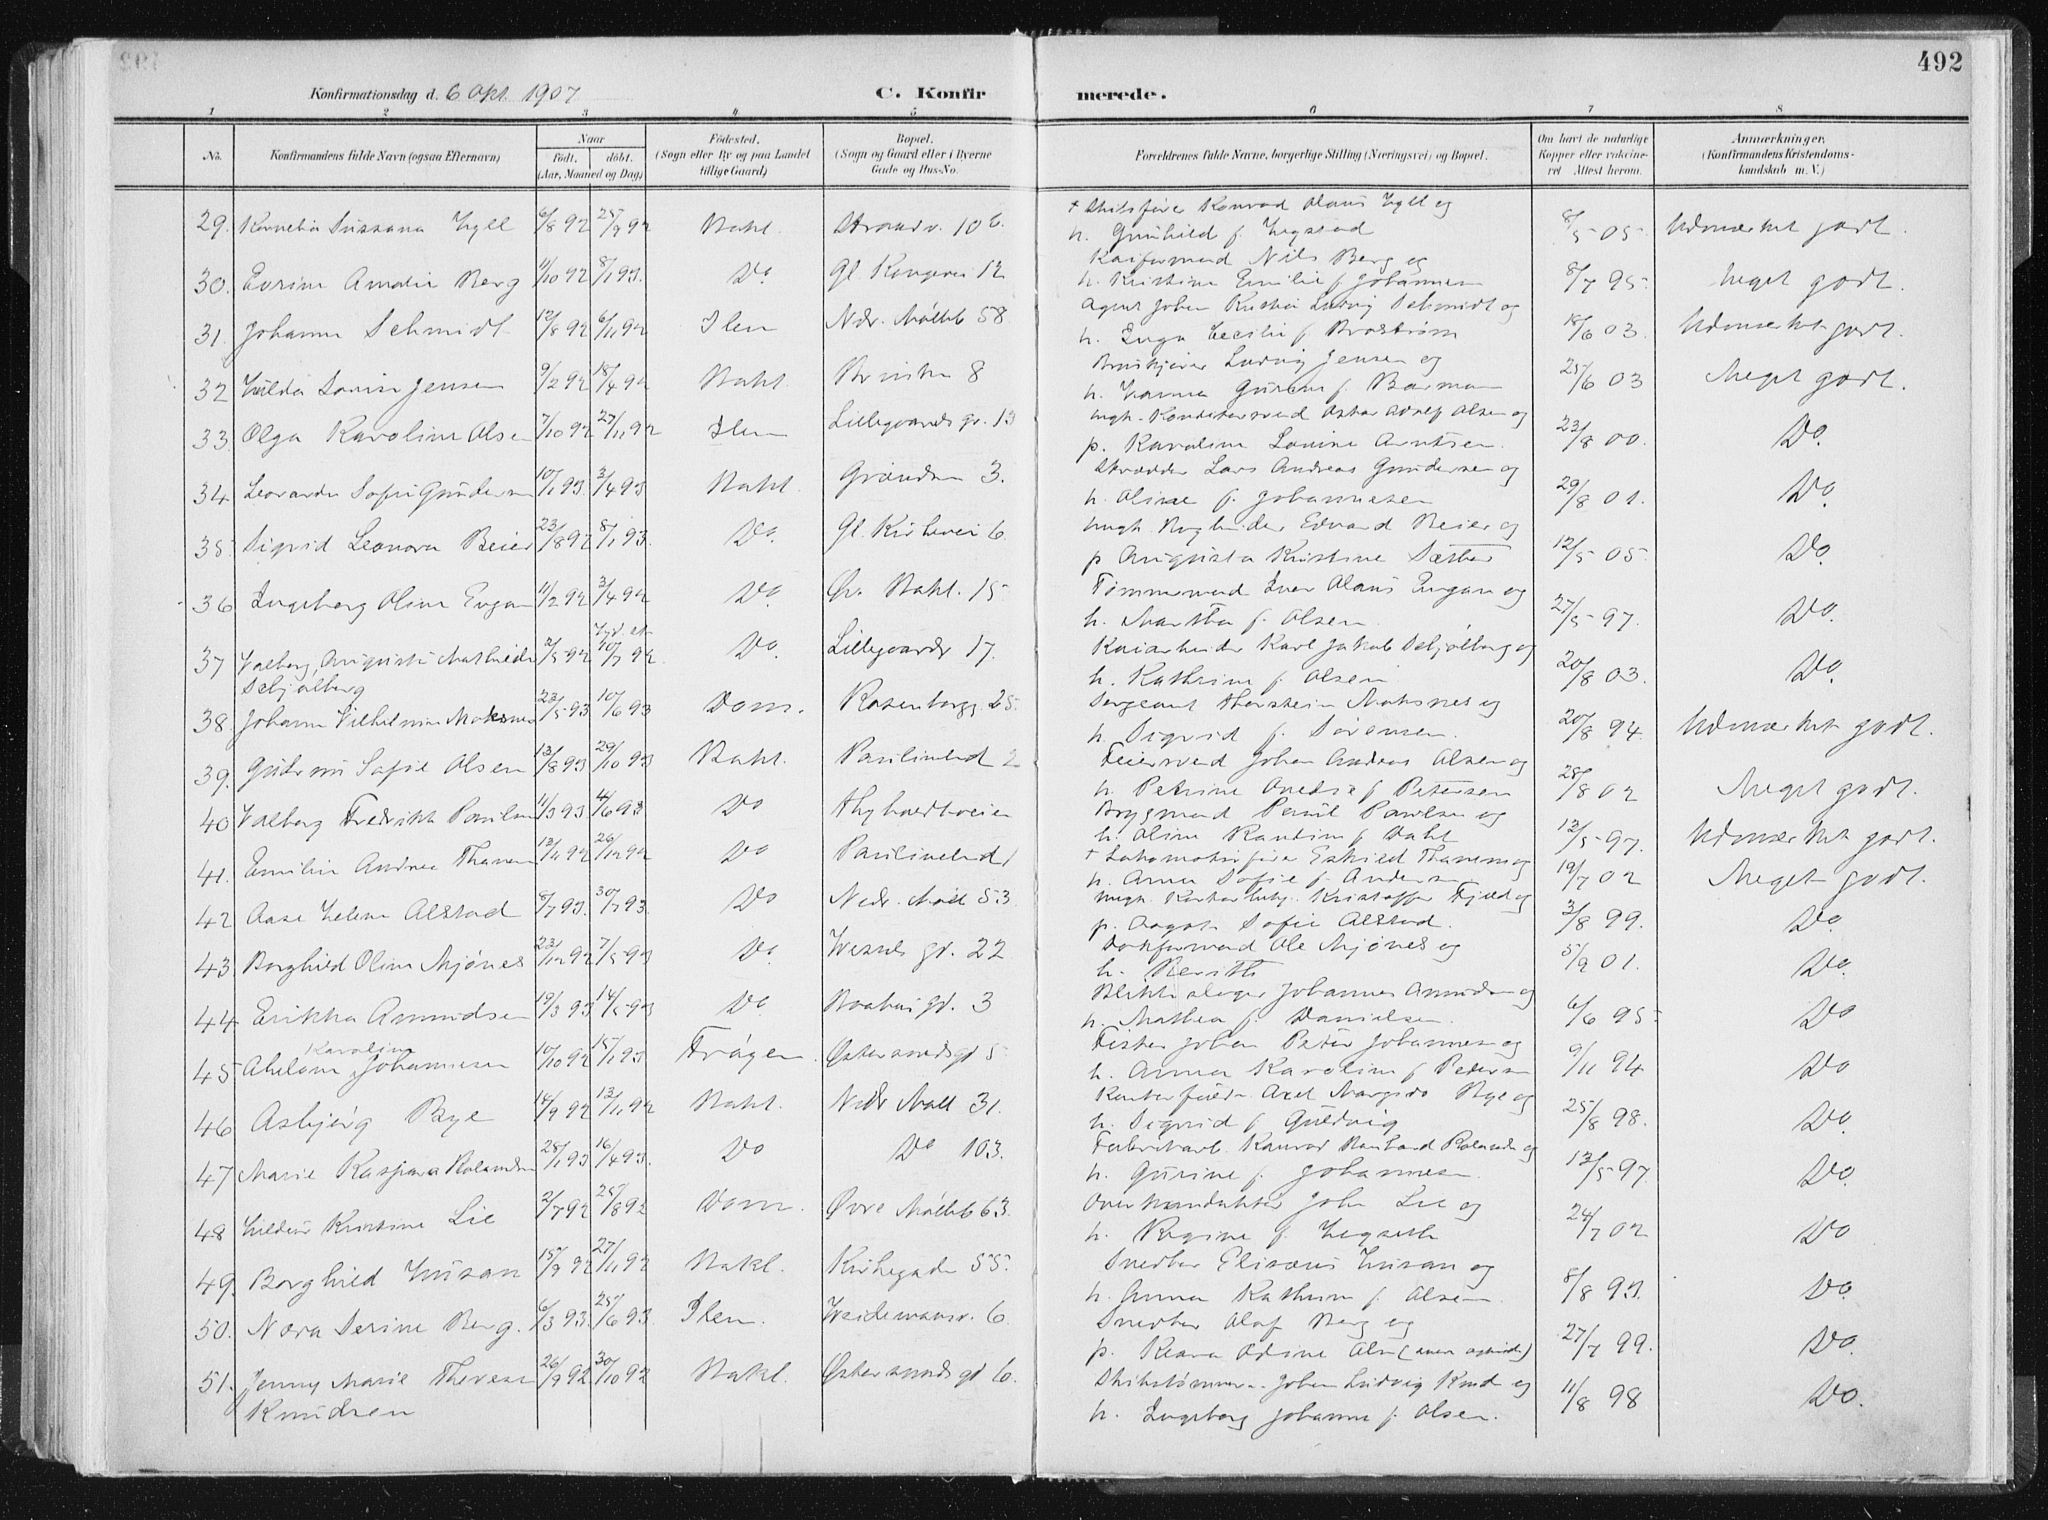 492
Konfirmationsdag d. 6 Okt. 1907
C. Konfirmerede.
1 2 3 4 5 6 7 8
No.
Konfirmandens fulde Navn (ogsaa Efternavn)
Naar
födt. döbt.
(Aar, Maaned og Dag)
Födested.
(Sogn eller By og paa Landet tillige Gaard)
Bopæl.
(Sogn og Gaard eller i Byerne Gade og Hus-No.
Forældrenes fulde Navne, borgerlige Stilling (Næringsvei) og Bopæl.
Om havt de naturlige Kopper eller vakcineret Attest herom.
Anmærkninger.
(Konfirmandens Kristendomskundskab m. V.)
29. Kornelia Sussana Hyll 6/8 92 25/9 92 Bakl. Strandv. 10 b. + Skibsfører Konrad Olaus Hyll og
h. Gunhild f. Hegstad 8/5 05 Udmærket godt.
30. Evrine Amalie Berg 11/10 92 8/1 93. Do. Gl. Kongevei 12 Kaiformand Nils Berg og
h. Kristine Emilie f. Johannesen 8/7 95 Meget godt.
31. Johanna Schmidt 12/8 92 6/11 92 Ilen Ndr. Mølleb 58 Agent Johan Ludvig Schmidt og
h. Inga Cecilie f. Broström 18/6 03. Udmærket godt.
32 Hilda Louise Jensen 9/2 92 18/4 92 Bakl. 8 Ludvig Jensen og
h. Hanna f. 25/6 03 Meget godt.
33. Olga Karoline Olsen 7/10 92 27/11 92 Ilen Lillegaards gr. 13 ungk. Konditorsvend Oskar Adolf Olsen og
p. Karoline Louise Arntsen. 23/8 00. Do.
34 Sofie Gundersen 10/1 93. 3/4 93 Bakl. Grænden 3. Skrædder Lars Andreas Gundersen og
h. Oline f. Johannesen 29/8 01. Do.
35 Sigrid Leonora Beier 23/8 92 8/1 93. Do. Gl. Kirkevei 6. ungk. Edvard Beier og
p. Augusta Kristine Sæther 12/5 05. Do.
36 Ingeborg Oline Engan 11/2 92 3/4 92 Do. Øv. Bakl. 15 Tømmermand Iver Olaus Engan og
h. Martha f. Olsen. 27/5 97. Do.
37 Valborg, Augusta Mathilde
Schjølberg 2/5 92 10/7 92 Do. Lillegaards 17. Kaiarbeider Karl Jakob Schjølberg og
h. Kathrine f. Olsen 20/8 03. Do.
38. Johanna Vilhelmine Moksnes 23/5 93 10/6 93 Dom. Rosenborgg. 25 Sergeant Thorstein Moksnes og
h. Sigrid f. Sørensen. 20/8 94. Udmærket godt.
39. Gudrun Sofie Olsen 13/8 93 29/10 93 Bakl. Paulinelund 2 Feiersvend Johan Andreas Olsen og
h. Petrine f. Petersen 28/8 02 Meget godt.
40. Valborg Fredrikke Paulsen 11/3 93 4/6 93 Do Thyholdtveien Bryggmand Paul Paulsen og
h. Oline f. Dahl 12/5 97. Udmærket godt.
41. Emilie Andrea Thanem 13/11 92 26/12 92 Do Paulinelund 1 + Lokomotivfører Eskild Thanem og
h. Anna Sofie f. Andersen 19/7 02 Meget godt.
42 Aase Helene Alstad 8/7 93. 30/7 93. Do Nedr. Møll 53. ungk. Kristoffer Fjeld og
p. Aagot Sofie Alstad. 3/8 99. Do.
43. Borghild Oline Mjønes 23/12 92 7/5 93 Do Wessels gd. 22 Ole Mjønes og
h. Berith 5/9 01. Do.
44. Erikka Amundsen 19/3 93 14/5 93 Do. gd. 3 Blikkslager Johannes Amundsen og
h. Mathea f. Danielsen. 6/6 95. Do
45 Karoline Johannesen 10/10 92 15/1 93. Frøyen. Østersundsgd 5 Fisker Johan Peter Johannesen og
h. Anna Karoline f. Pedersen 9/11 94 Do
46 Asbjørg Bye 14/9 92 13/11 92 Bakl. Nedr Møll 31. Axel Margido Bye og
h. Sigrid f. Guldvig 25/8 98. Do.
47 Marie Kaspara Rolandsen 28/1 93 16/4 93. Do Do 103. Fabrikarb. Konrad Rolandsen og
h. Gurine f. Johannesen 12/5 97 Do.
48 Kristine Lie 2/7 92 25/8 92 Dom. Øvre Møllebg 63. Overkonduktør John Lie og
h. Regine f. Hegseth 24/7 02 Do
49. Borghild Husan 15/9 92 27/11 92 Bakl. Kirkegaden 55. Snedker Eliseus Husan og
h. Anna Kathrine f. Olsen. 8/8 93. Do.
50. Nora Serine Berg. 6/3 93. 25/6 93. Ilen. Weidemansv. 6. Snedker Olaf Berg og
p. Klara Odine 27/7 99. Do.
51. Jenny Marie Therese
Knudsen 26/9 92 30/10 92 Bakl. Østersundsgd 6. Skibstømmerm. Johan Ludvig Knudsen og
h. Ingeborg Johanna f. Olsen. 11/8 98 Do.